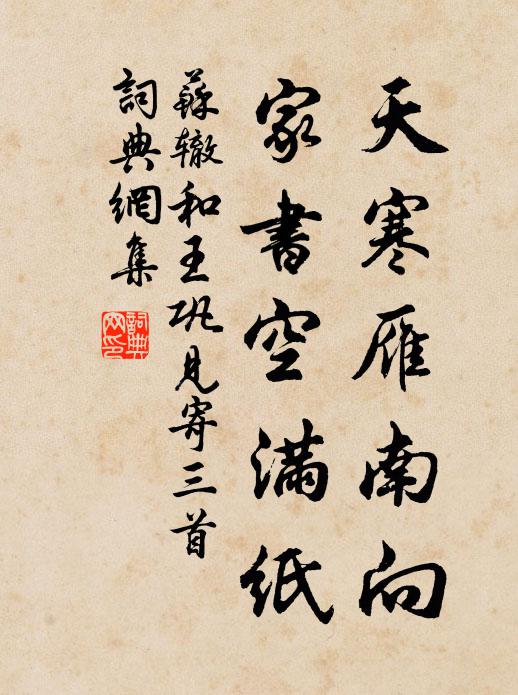 天寒雁南向
家書空滿紙
蘇辙和王巩見寄三首
詞典網集
詞典
网印